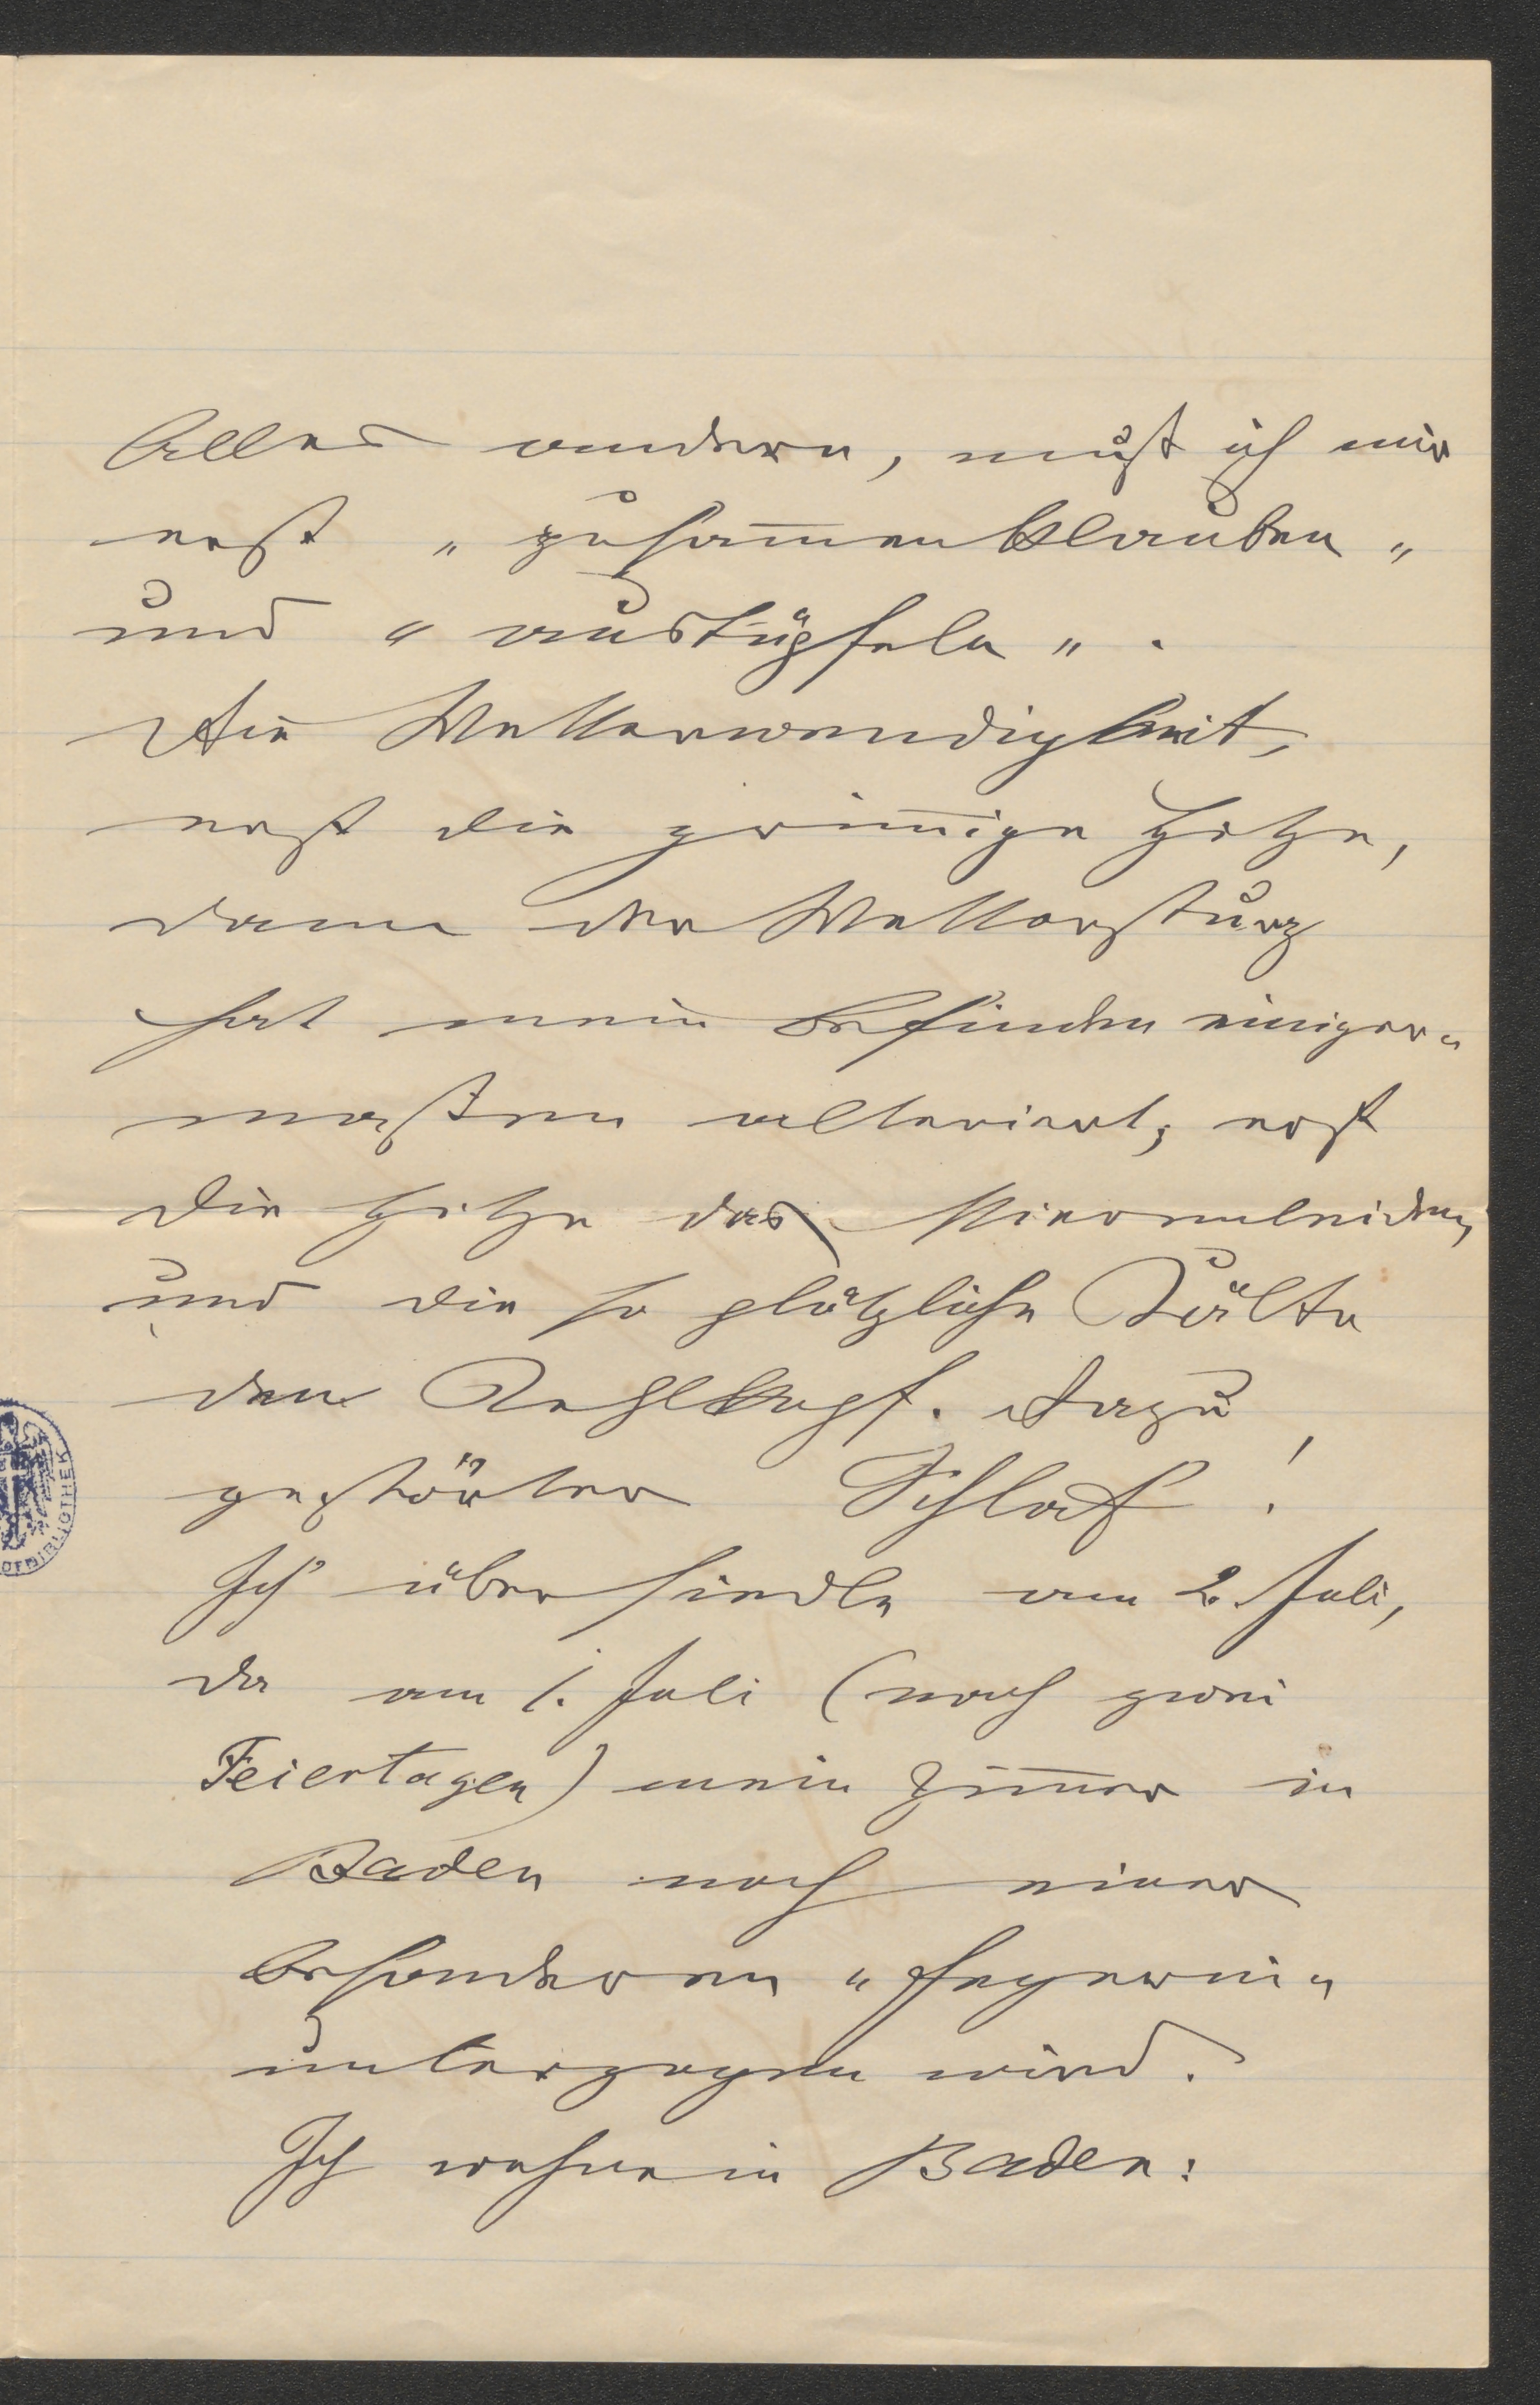 Alles andere, muß ich mir
erst „zusam̅enklauben„
und „austüpfeln„.
Die Wetterwendigkeit,
erst die grim̅ige Hitze,
dann der Wettersturz
hat mein Befinden einiger„
maßen alteriert; erst
die Hitze das Nierenleiden,
und die so plötzliche Kälte
den Kehlkopf. Dazu
gestörter Schlaf!
Ich übersiedle am 2. Juli,
da am 1. Juli (nach zwei
Feiertagen) mein Zim̅er in
Baden noch einer
besonderen „Fegerei„
unterzogen wird.
Ich wohne in Baden:
OFBIBLIOTHEK